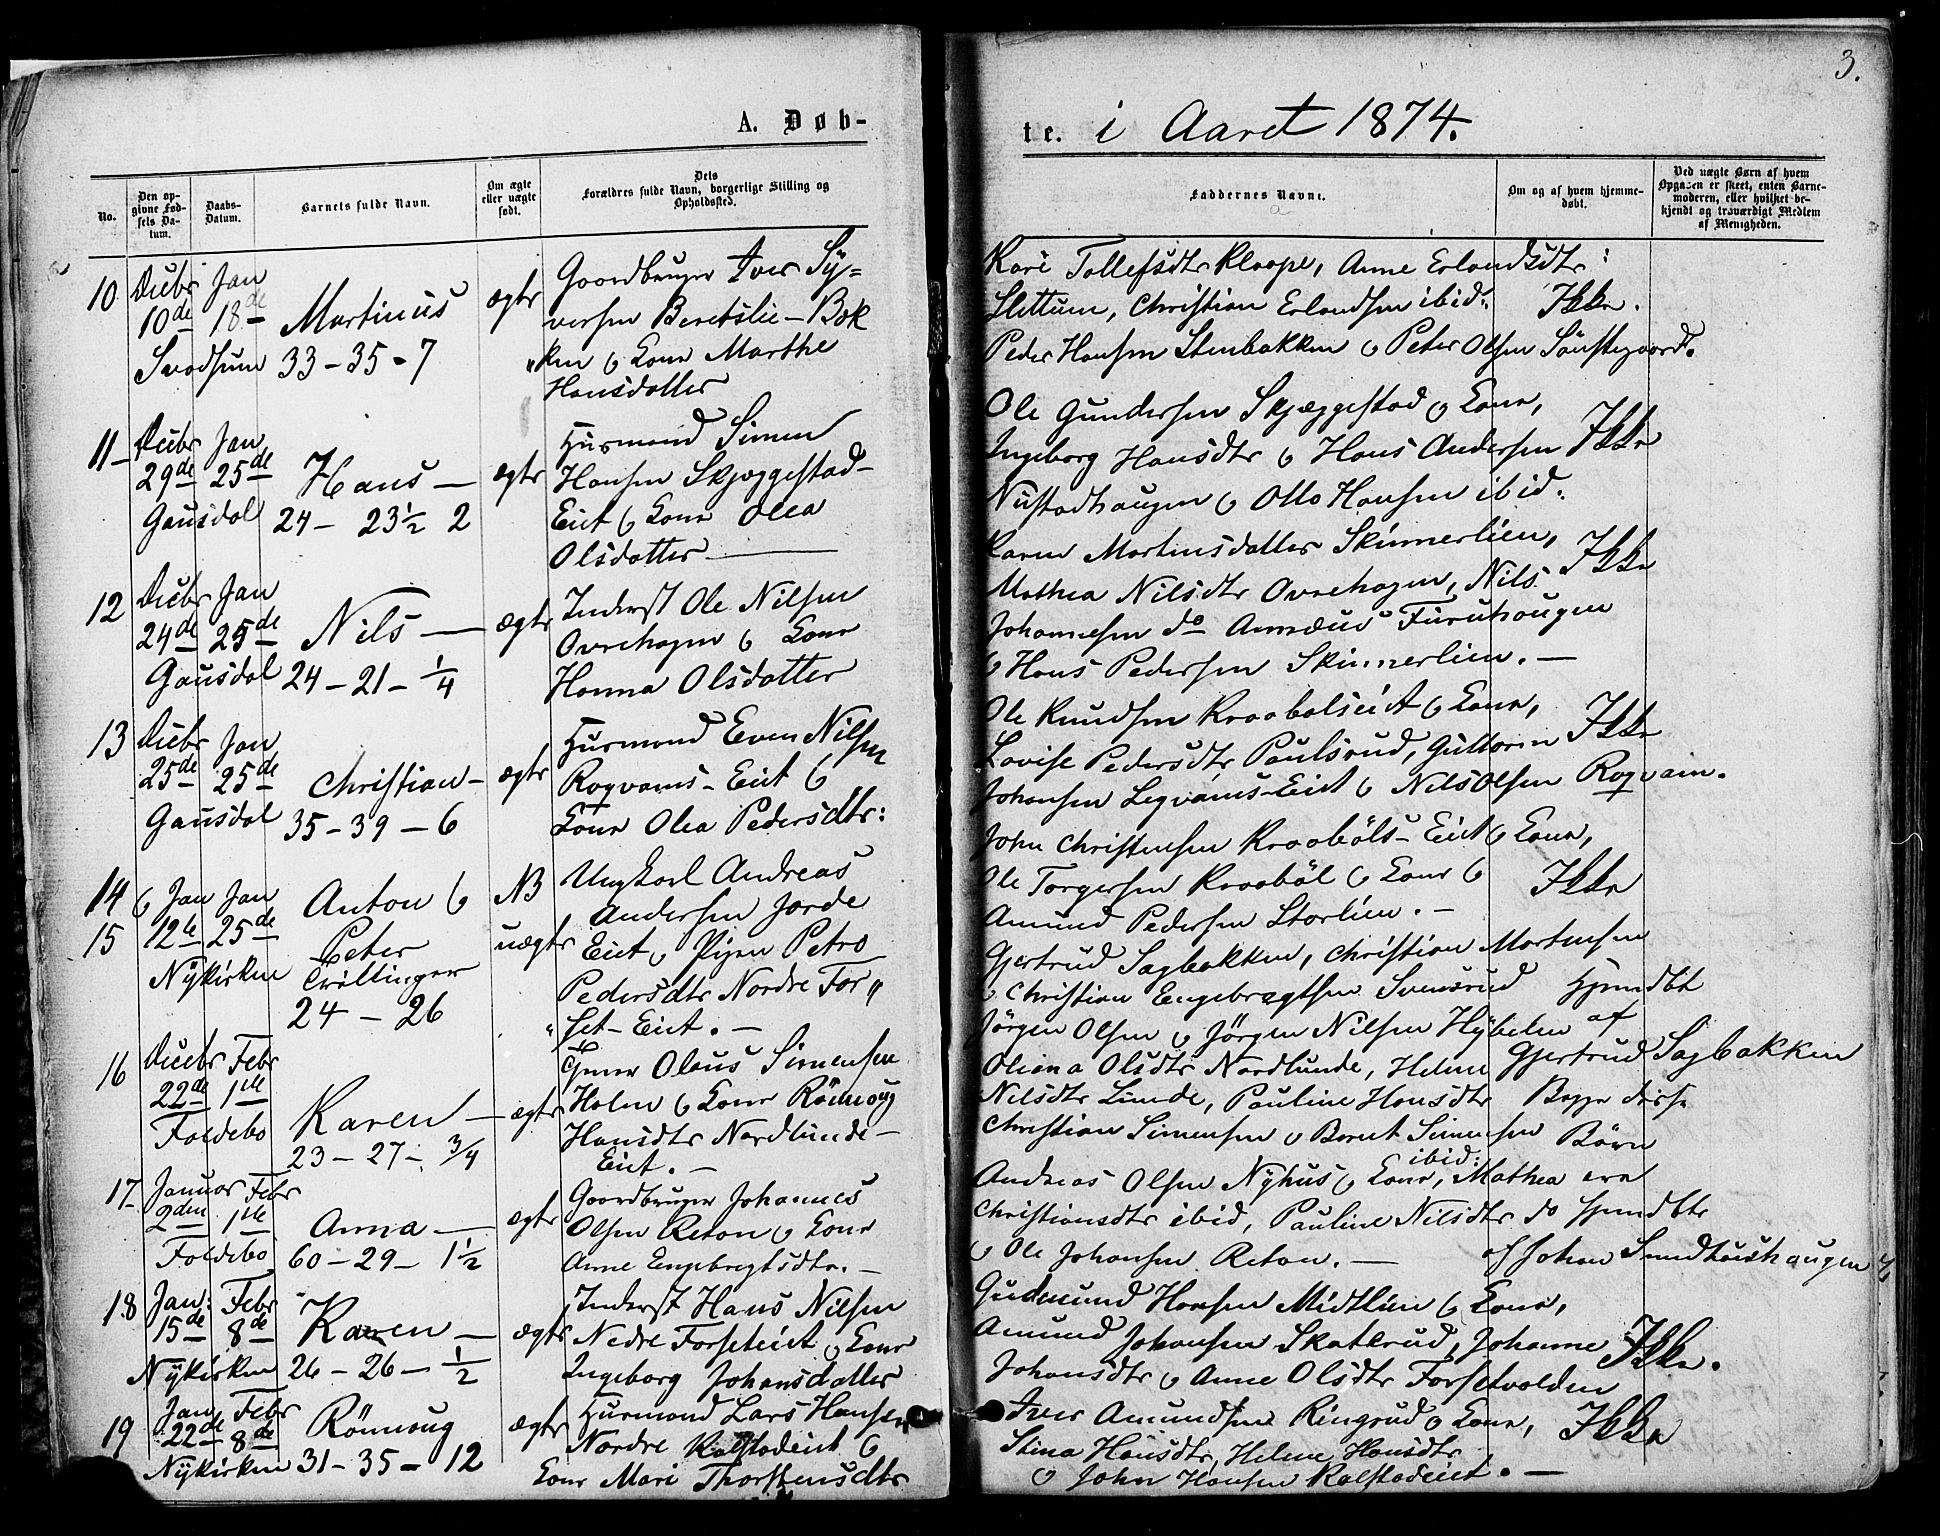 3.
A. Døb-
te. i Aaret 1874.
No.
Den op-
givne Fød-
sels Da-
tum.
Daabs-
Datum.
Barnets fulde Navn.
Om ægte
eller uægte
født.
Dets
Forældres fulde Navn, borgerlige Stilling og
Opholdssted.
Faddernes Navne.
Om og af hvem hjemme-
døbt.
Ved uægte Børn af hvem
Opgaven er skeet, enten Barne-
moderen, eller hvilket be-
kjendt og troværdigt Medlem
af Menigheden.
10 Decbr Jan
10de 18de Martinus ægte
Svadsum 33-35-7
Gaardbruger Iver Sy=
versen Beretslie-Bak
"ken & Kone Marthe
Hansdatter
Kari Tollefsdtr Klaape, Anne Erlandsdtr:
Slettum, Christian Erlandsen ibid: Ikke.
Peder Hansen Stenbakken & Peter Olsen Sønstegaard.
11 Decbr Jan
29de 25de Hans ægte
Gausdal 24-23½ 2
Husmand Simen
Hansen Skjæggestad-
Eiet & Kone Olea
Olsdatter
Ole Gundersen Skjæggestad & Kone,
Ingeborg Hansdtr & Hans Andersen Ikke
Nustadhaugen & Otto Hansen ibid.
12 Decbr Jan
24de 25de Nils ægte
Gausdal 24-21-¼
Inderst Ole Nilsen
Øvrehagen & Kone
Hanna Olsdatter
Karen Martinsdatter Skinnerlien,
Mathea Nilsdtr Øvrehagen, Nils Ikke
Johannesen do Amæus Furuhaugen
& Hans Pedersen Skinnerlien.
13 Decbr Jan
25de 25de Christian ægte
Gausdal 35-39-6
Husmand Even Nilsen
Roqvams-Eiet &
Kone Olea Pedersdtr:
Ole Knudsen Kraabølseiet & Kone,
Lovise Pedersdtr Paulsrud, Guttorm Ikke
Johansen Legvams-Eiet & Nils Olsen Roqvam.
14 & Jan Jan Anton & NB
15 12te 25de Peter uægte
Nykirken Tvillinger
24-26
Ungkarl Andreas
Andersen Jorde
Eiet & Pigen Petra
Pedersdtr Nordre For"
"set-Eiet.
John Christensen Kraabøls-Eiet & Kone,
Ole Torgersen Kraabøl & Kone & Ikke
Amund Pedersen Storlien.
Gjertrud Sagbakken, Christian Mortensen
& Christian Engebregtsen Svensrud Hjemdbt
Jørgen Olsen & Jørgen Nilsen Hybelen af
Gjertrud Sagbakken
Begge disse
Børn
16 Decbr Febr
22de 1ste Karen ægte
Foldebo 23-27-¾
Gmr Olaus Simensen
Holm & Kone Rønnoug
Hansdtr Nordlunde-
Eiet.
Oliana Olsdtr Nordlunde, Helene
Nilsdtr Lunde, Pauline Hansdtr
Christian Simensen & Bernt Simensen
ibid:
17 Januar Febr
2den 1ste Anna ægte
Foldebo 60-29-1½
Gaardbruger Johannes
Olsen Reton & Kone
Anne Engebregtsdtr.
Andreas Olsen Nyhus & Kone, Mathea
Christiansdtr ibid, Pauline Nilsdtr do Hjemdbt
& Ole Johansen Reton. af Johan Smedhushaugen
18 Jan. Febr
15de 8de Karen ægte
Nykirken 26-26-½
Inderst Hans Nilsen
Nedre Forseteiet & Kone
Ingeborg Johansdatter
Gudmund Hansen Midtlien & Kone,
Amund Johansen Skatterud, Johanne Ikke.
Johansdtr & Anne Olsdtr Forsetvolden
19 Jan Febr
22de 8de Rønnoug ægte
Nykirken 31-35-12
Husmand Lars Hansen
Nordre Kalstadeiet &
Kone Mari Thorstensdtr
Iver Amundsen Ringrud & Kone, Ikke
Stina Hansdtr, Helene Hansdtr
& John Hansen Kalstadeiet.